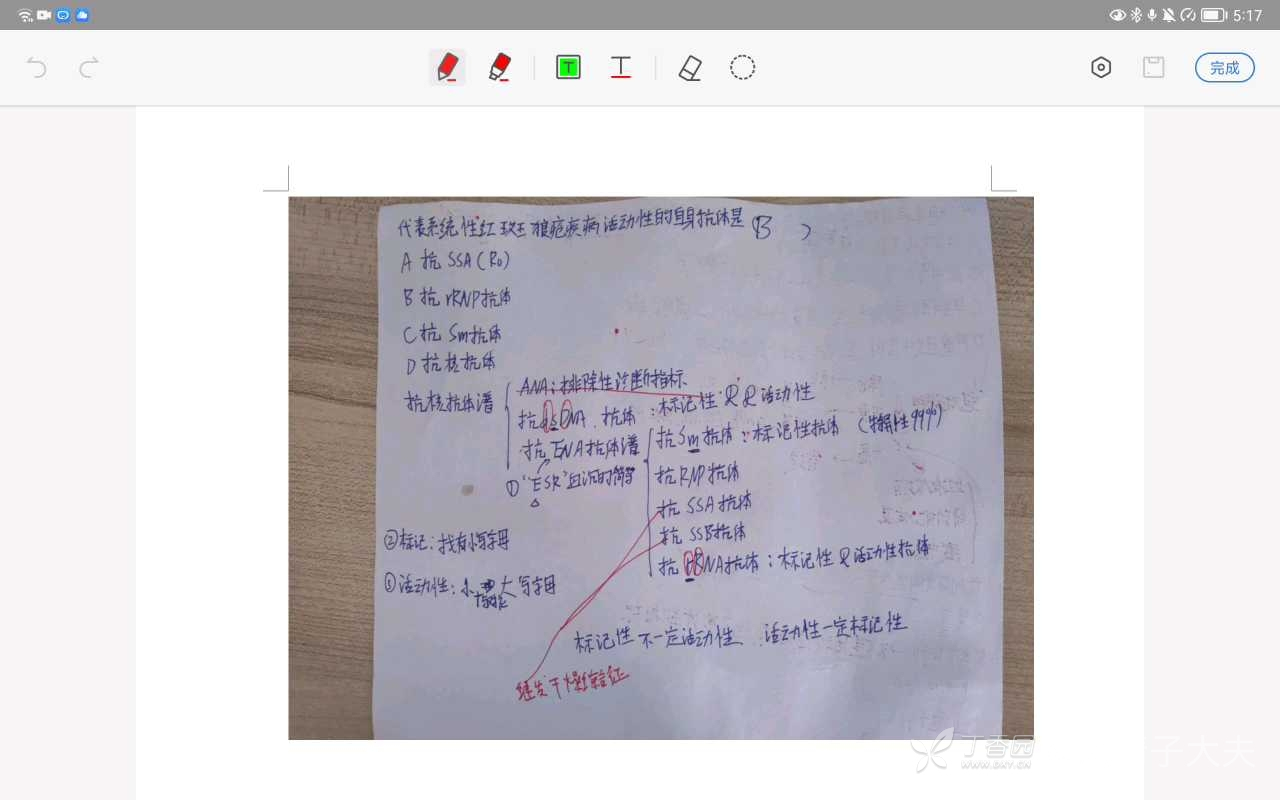 5:17
完成
代表系统性红斑狼疮疾病活动性的自身抗体是(B )
A 抗 SSA(Ro)
B 抗 rRNP抗体
C 抗 Sm抗体
D 抗核抗体
抗核抗体谱
ANA:排除性诊断指标
抗dsDNA 抗体:标记性 及 活动性
抗ENA抗体谱
①"ESR"血沉的
抗Sm抗体:标记性抗体(特异性99%)
抗RNP抗体
抗 SSA抗体
抗 SSB抗体
抗 rRNA抗体:标记性 及 活动性抗体
②标记:找有小写字母
③活动性:小 大写字母
标记性 不一定活动性、活动性一定标记性
继发干燥综合征
丁香园
WWW.DXY.CN
子大夫